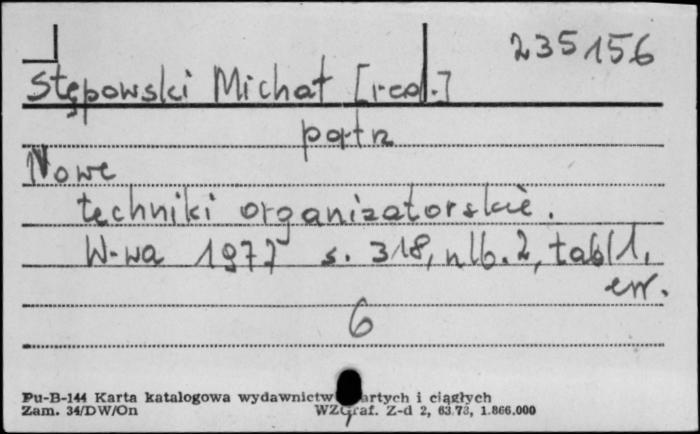 235156
Stępowski Michał [red.]
patrz
Nowe
techniki organizatorskie.
W-wa 1977 s. 318, nlb. 2, tabl 1,
err.
6
Pu-B-144 Karta katalogowa wydawnictw artych i ciągłych
Zam. 34/DW/On WZGraf. Z-d 2, 63.73, 1.866.000